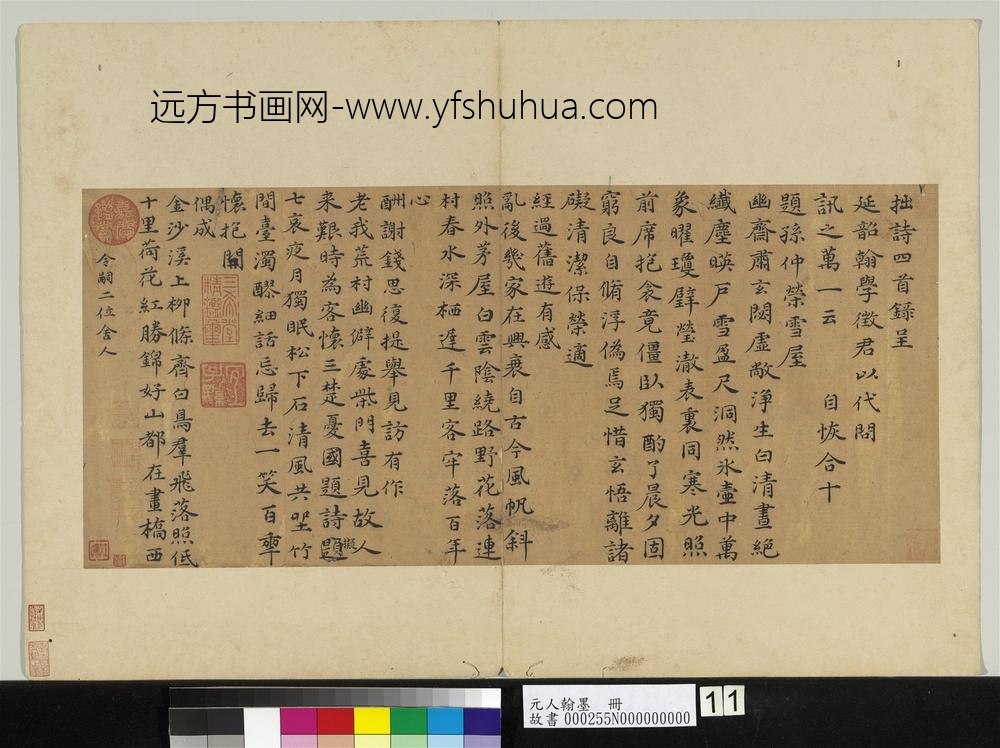 远方书画网-www.yfshuhua.com
拙詩四首録呈
延韶翰學徵君以代問
訊之萬一云 自恢合十
題孫仲榮雪屋
幽齋肅玄閟虛敞淨生白清晝絶
纖塵暎戶雪盈尺洞然氷壷中萬
象曜瓊璧瑩澈表裏同寒光照
前席抱衾竟僵臥獨酌了晨夕固
窮良自脩浮偽焉足惜玄悟離諸
礙清潔保榮適
經過舊遊有感
亂後幾家在興衰自古今風帆斜
照外茅屋白雲陰繞路野花落連
村春水深栖遲千里客牢落百年
心
酬謝錢思復提舉見訪有作
老我荒村幽僻處柴門喜見故人
来艱時為客懷三楚憂國題詩擬
七哀夜月獨眠松下石清風共坐竹
間臺濁醪細話忘歸去一笑百
懷抱開
偶成
金沙溪上柳條齊白鳥羣飛落照低
十里荷花紅勝錦好山都在畫槁西
令嗣二位舍人
元人翰墨 冊
故書 000255N000000000
11